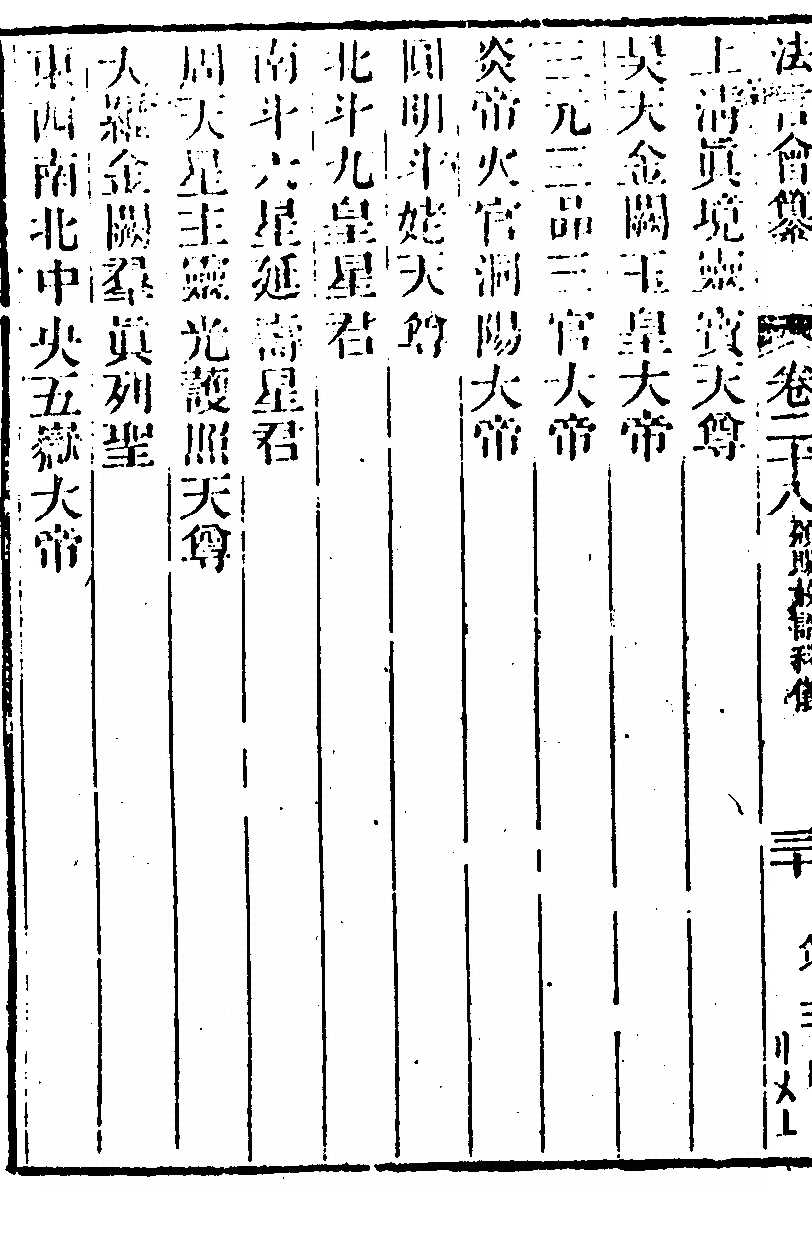 法言會纂 卷二十八 頒賜赦詔科儀 三十
上清眞境靈寶天尊
昊天金闕玉皇大帝
三元三品三官大帝
炎帝火官洞陽大帝
圓明斗姥天尊
北斗九皇星君
南斗六星延壽星君
周天星主靈光護照天尊
大羅金闕羣眞列聖
東西南北中央五嶽大帝